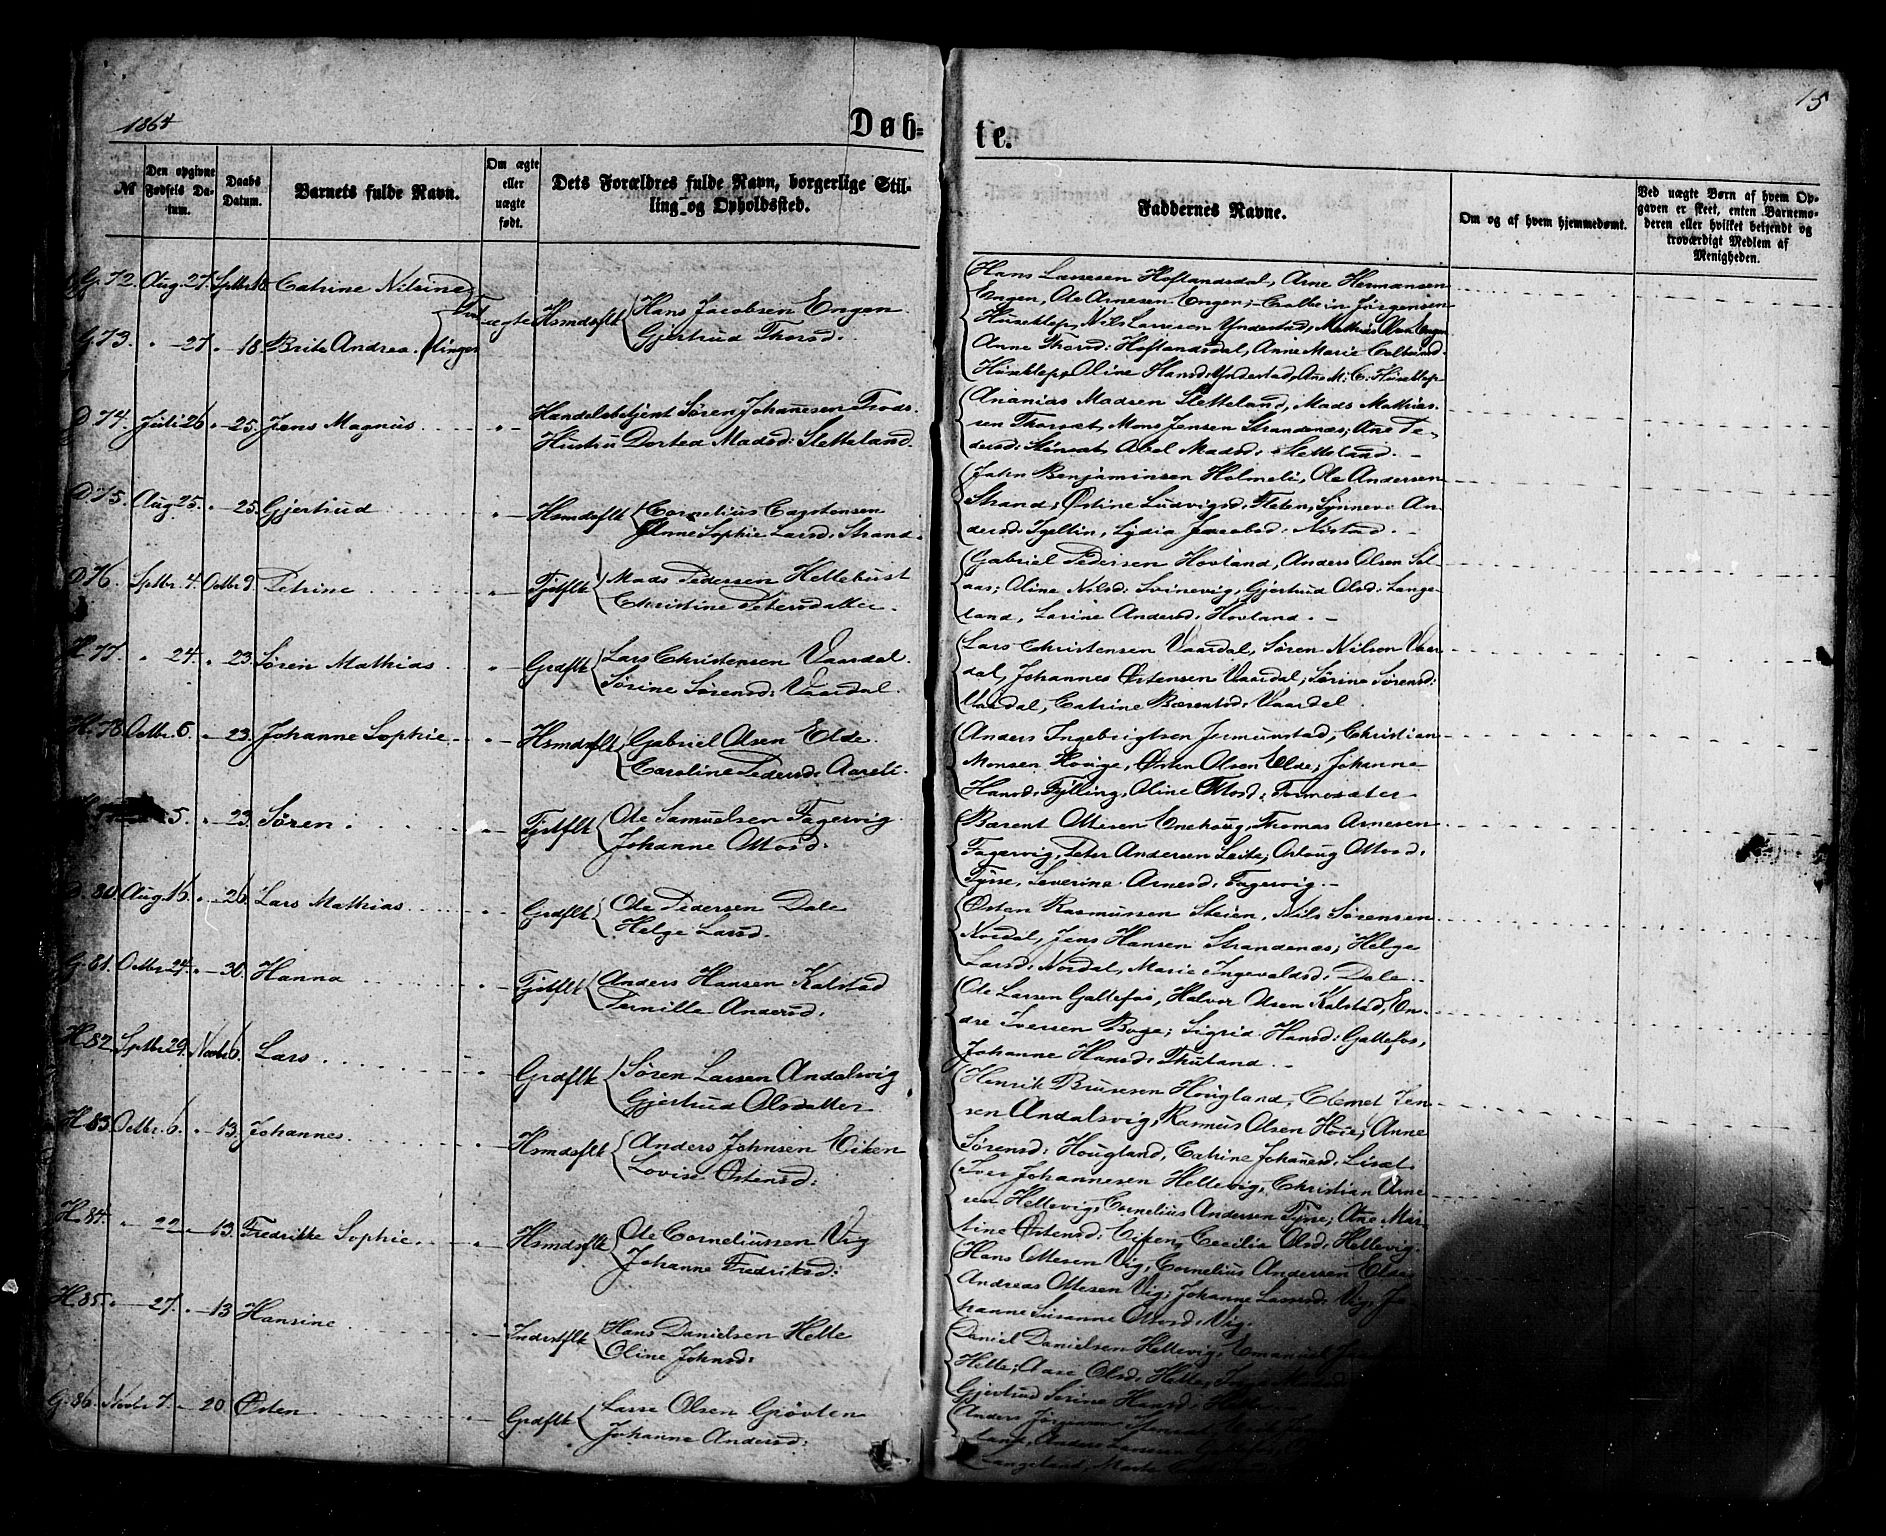 1864
Døb-
te.
15
№
Den opgivne Fødsels Datum.
Daabs Datum.
Barnets fulde Navn.
Om ægte eller uægte født.
Dets Forældres fulde Navn, borgerlige Stilling og Opholdssted.
Faddernes Navne.
Om og af hvem hjemmedøbt.
Ved uægte Børn af hvem Opgaven er skeet, enten Barnemoderen eller hvilket bekjendt og troværdigt Medlem af Menigheden.
G. 72. Aug. 27. Sptbr. 18. Catrine Nilsine
G. 73. " - 27. " - 18. Brite Andrea. Tvillinger
ægte Hsmdsflk Hans Jacobsen Engen
Gjertrud Thorsd:
Hans Larsesen Hoflandsdal, Arne Hermansen
Engen, Ole Arnesen Engen, Jørgensen
Huseklep, Nils Larsesen Yndestad, Mathias
Anne Thorsd: Hoflandsdal, Anne Marie
Huseklep, Oline Hansd: Yndestad, Ane M. C. Huseklep
D 74. Juli 26 " - 25. Jens Magnus " Handelsbetjent Søren Johanesen
Hustru Dortea Madsd: Sletteland.
Ananias Madsen Sletteland, Mads Mathias-
sen, Mons Jensen Strandenæs; Ane Pe-
dersd:, Abel Madsd: Sletteland. -
D 75. Aug. 25. " - 25. Gjertrud " Hsmdsflk Cornelius Carstensen
Anne Sophie Larsd: Strand.
John Benjaminsen Holmeli, Ole Andersen
Strand; Østine Ludvigsd: Fleten, Synneve An-
dersd:, Lydia Jacobsd: Nistad. -
D 76. Sptbr. 4. Octbr 9. Petrine " Fjstflk Mads Pedersen Hellebust
Christine Petersdatter.
Gabriel Pedersen Hovland, Anders Olsen Sel-
aas; Oline Nilsd: Svinevig, Gjertrud Olsd: Lange-
land, Larine Andersd: Hovland. -
H. 77. " 24. " 23. Søren Mathias " Grdflk Lars Christensen Vaardal.
Sørine Sørensd: Vaardal.
Lars Christensen Vaardal, Søren Nilsen Vaar-
dal, Johannes Østensen Vaardal; Sørine Sørensd:
Vaardal, Catrine Bærentsd: Vaardal.
H. 78 Octbr. 6. " - 23. Johanne Sophie. " Hsmdsflk Gabriel Olsen Elde.
Caroline Pedersd: Aareli.
Anders Ingebrigtsen Jermunstad, Christian
Monsen, Østen Olsen Elde; Johanne
Hansd: Fylling, Oline Ottosd:
5. " - 23. Søren. " Fjstflk Ole Samuelsen Fagervig.
Johanne Ottosd:
Bærent Ottesen, Thomas Arnesen
Fagervig, Peter Andersen Leite; Ottosd:
Tysse, Severine Arnesd: Fagervig. -
D. 80. Aug. 16. " - 26. Lars Mathias " Grdflk Ole Pedersen Dale
Helge Larsd.
Østen Rasmussen Steien, Nils Sørensen
Nordal, Jens Hansen Strandenæs; Helge
Larsd: Nordal, Marie Ingevaldsd: Dale. -
G. 81. Octbr. 24. " - 30. Hanna " Fjstflk Anders Hansen Kalstad
Pernille Andersd.
Ole Larsen Galtefos, Halvor Olsen Kalstad, En-
dre Iversen Boge; Sigrid Hansd: Galtefos,
Johanne Hansd: Thuland. -
H. 82 Sptbr. 29. Novbr. 6. Lars " Grdflk Søren Larsen Andalsvig
Gjertrud Olsdatter
Henrik Brunsen Hougland, Clemet Jen-
sen Andalsvig, Rasmus Olsen Høie; Anne
Sørensd: Hougland, Catrine Johanesd:
H. 83. Octbr. 6. " - 13. Johannes. " Hsmdsflk Anders Johnsen Eiken
Lovise Østensd:
Iver Johannesen Hellevig, Christian Arne-
sen Hellevig, Cornelius Andersen Tysse; Ane Mar-
tine Østensd: Eiken, Cecilia Olsd: Hellevig.
H. 84. " - 22 " - 13. Fredrikke Sophie. " Hsmdsflk Ole Corneliussen Vig
Johanne Fredriksd:
Hans Ottesen Vig, Cornelius Andersen Elde,
Andreas Ottesen Vig; Johanne Larsesd: Vig, Jo-
hanne Susanne Olsd: Vig.
H. 85. " - 27. " - 13 Hansine " Inderstflk Hans Danielsen Helle
Oline Johnsd:
Daniel Danielsen Hellevig, Emanuel
Helle; Aase Olsd: Helle,
Gjertrud Sørine Hansd: Helle. -
G. 86. Novbr. 7. " - 20. Østen. " Grdflk Lasse Olsen Grøvlen
Johanne Andersd:
Anders Jørgensen
land, Anders Larsesen
Langeland, Marte